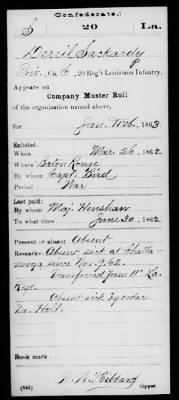 (Confederate.)
S 20 La.
Derril Sackardy
Priv., Co. C, 20 Reg't Louisiana Infantry.
Appears on
Company Muster Roll
of the organization named above,
for Jan. & Feb., 1863
Enlisted:
When Mar. 26, 1862
Where Baton Rouge
By whom Capt. Bird
Period War
Last paid:
By whom Maj. Henshaw
To what time June 30, 1862
Present or absent Absent
Remarks: Absent sick at Chatta-
nooga since Nov. 9, 62.
Transferred from 11" La.
Regt.
Absent sick by order
Dr. Holt.
Book mark:
(642) Copyist.